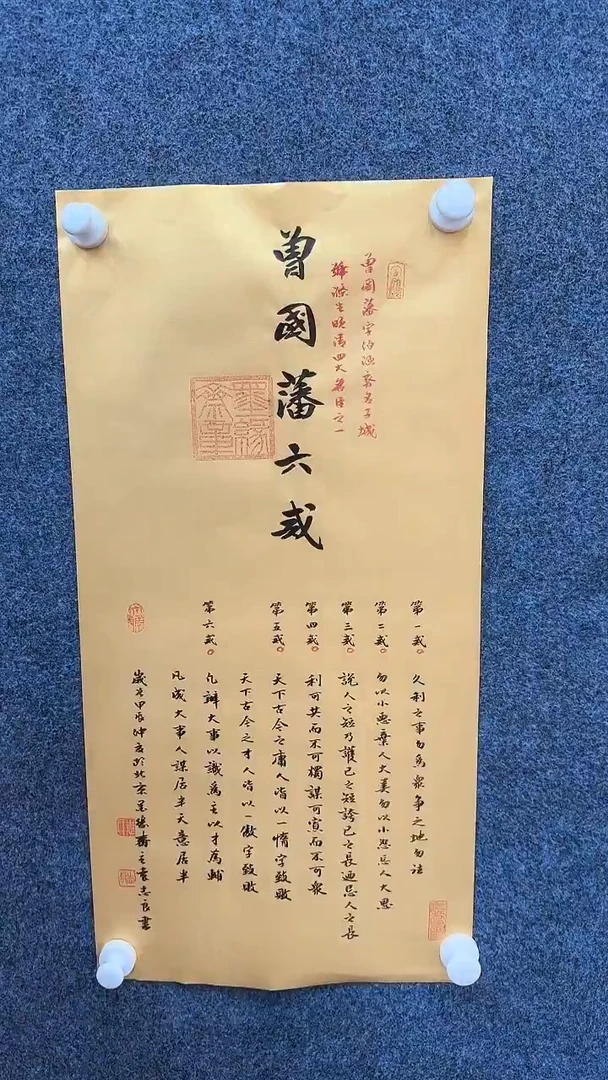 曾國藩六戒
曾國藩字伯涵原名子城
號滌生晚清四大名臣之一
第一戒 久利之事勿為眾爭之地勿往
第二戒 勿以小惡棄人大美勿以小怨忘人大恩
第三戒 說人之短乃護己之短誇己之長迺忌人之長
第四戒 利可共而不可獨謀可寡而不可眾
第五戒 天下古今之庸人皆以一惰字致敗
天下古今之才人皆以一傲字致敗
第六戒 凡辦大事以識為主以才為輔
凡成大事人謀居半天意居半
歲在甲辰仲於北京墨緣齋主袁志良書
墨緣齋